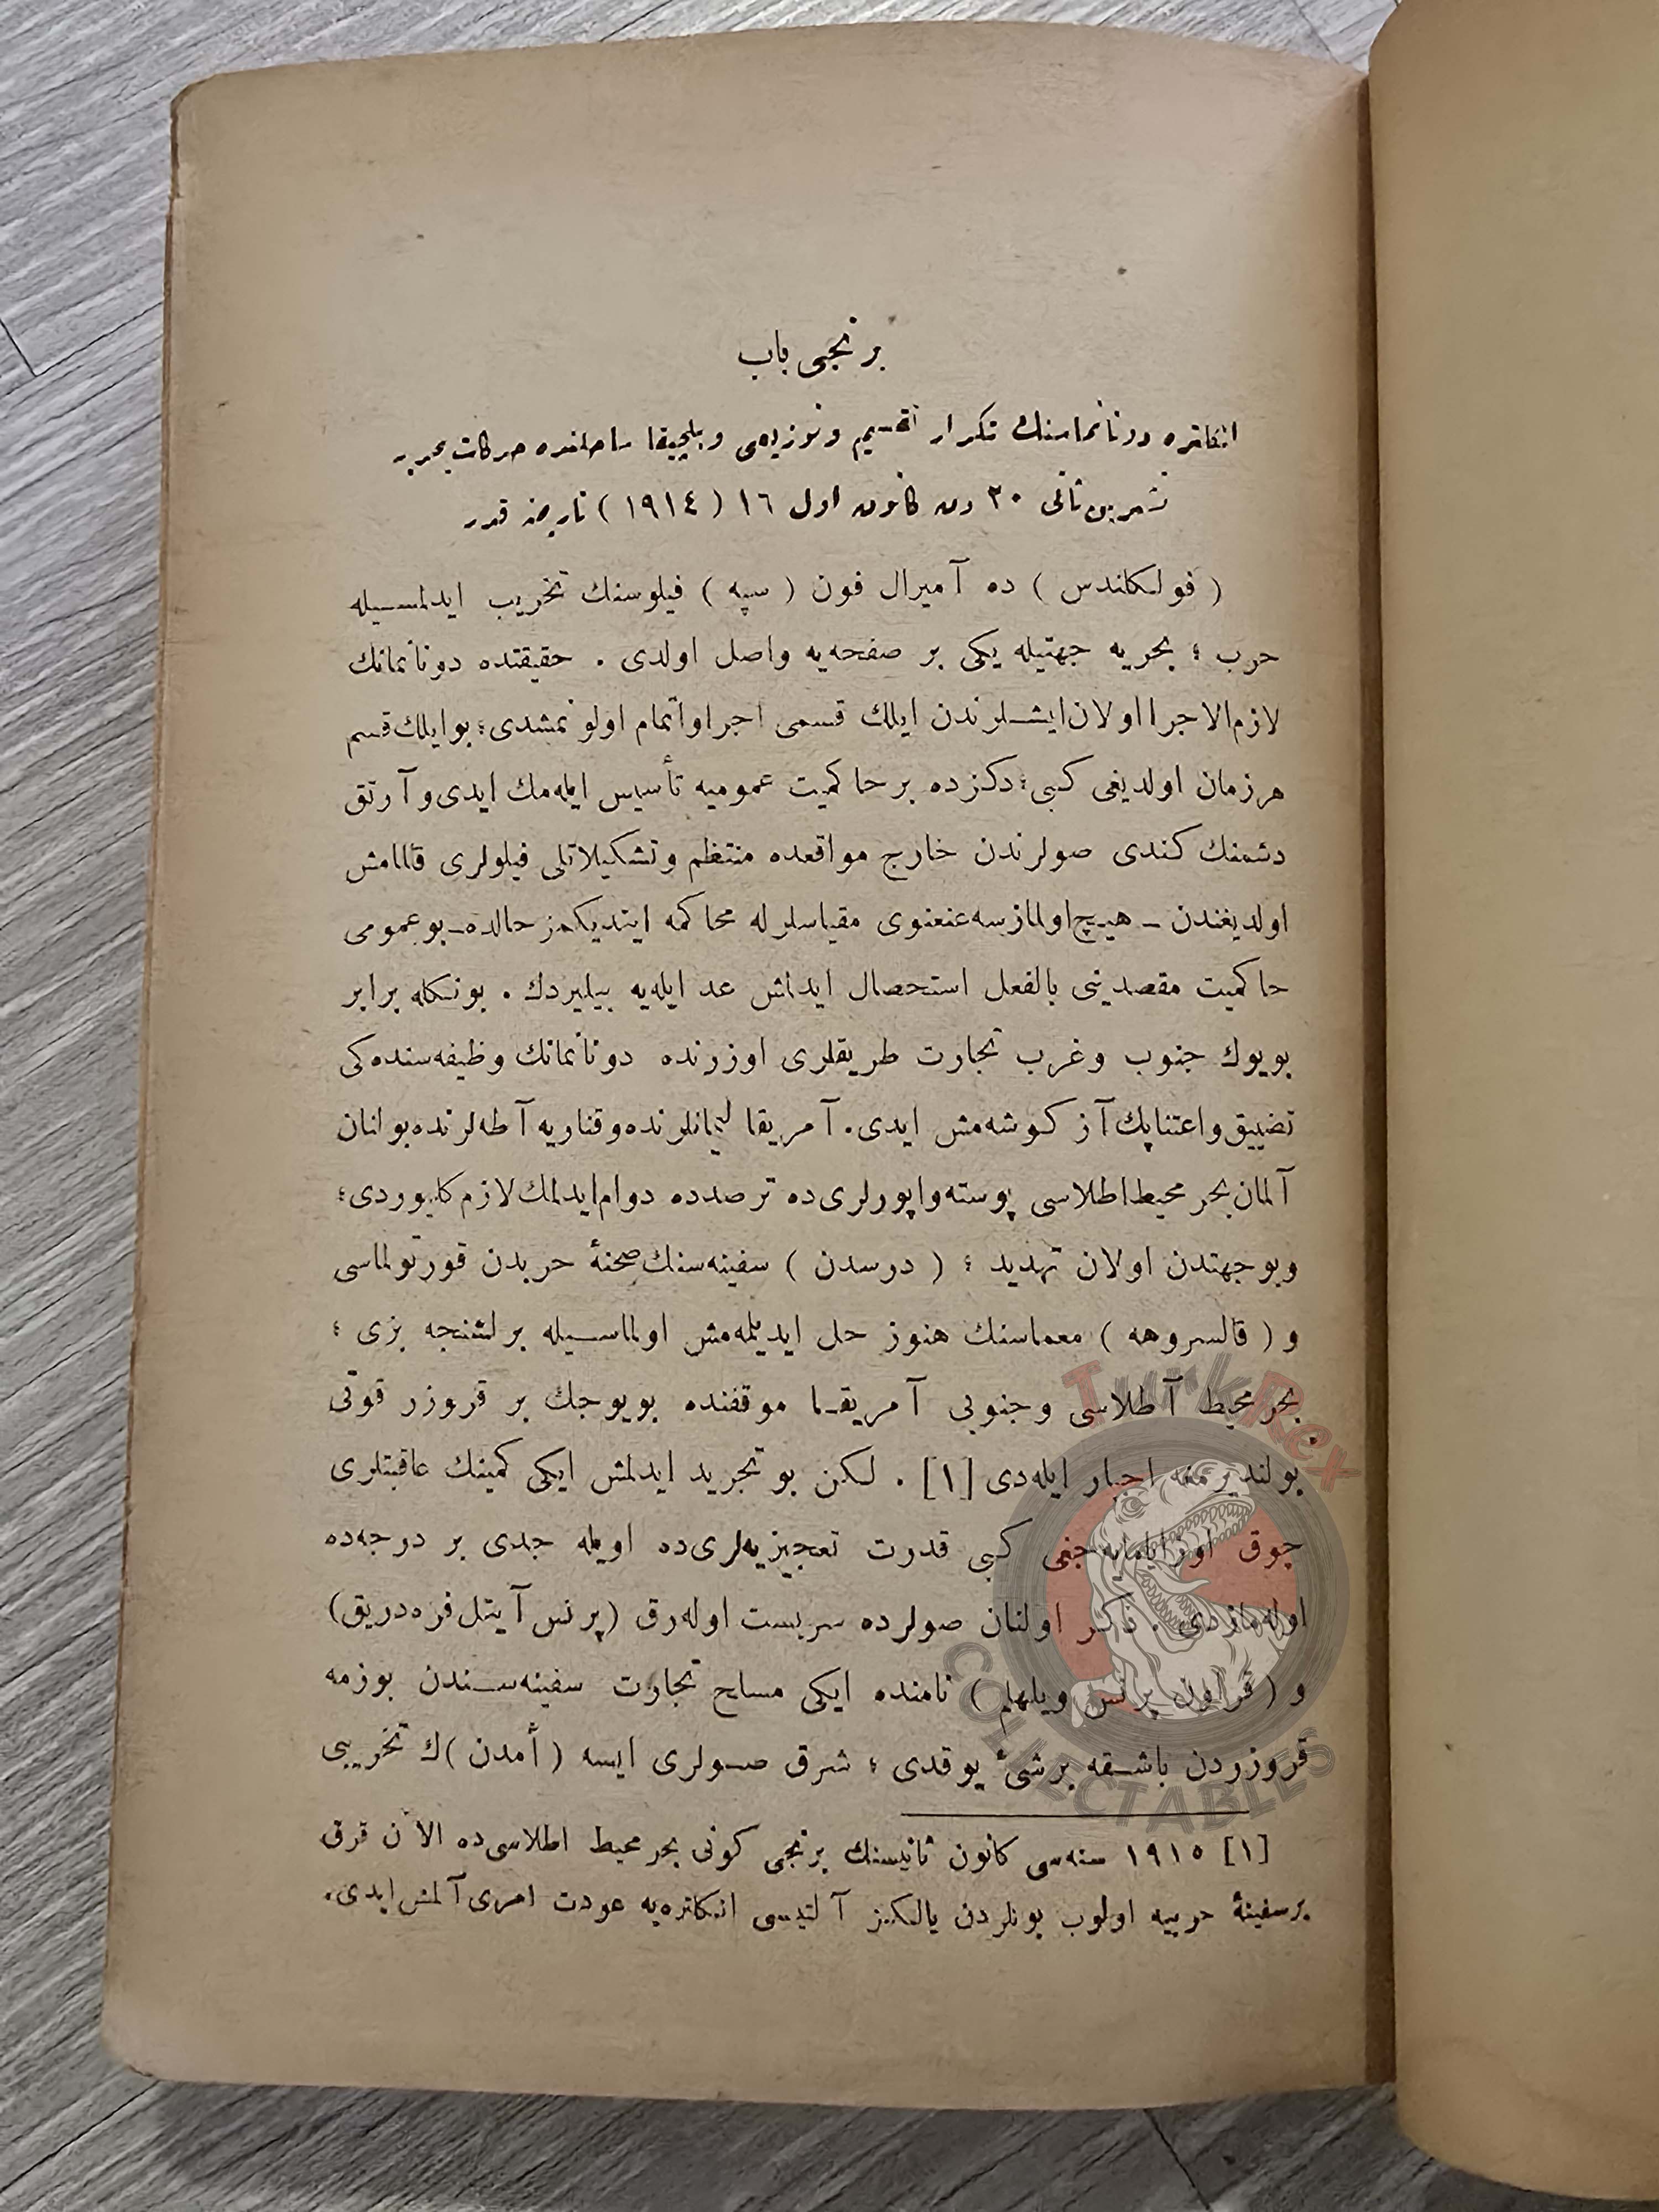 برنجی باب
انكلتره دونانماسنك تكرار تقسیم وتوزیعی وبلچیقا ساحلنده حركات بحریه
تشرین ثانی ٣٠ دن كانون اول ١٦ ( ١٩١٤ ) تاریخنه قدر
( فولكلندس ) ده آمیرال فون ( سپه ) فیلوسنك تخریب ایدلمسیله
حرب ؛ بحریه جهتیله یكی بر صفحه‌یه واصل اولدی . حقیقتده دونانمانك
لازم‌الاجرا اولان ایشلرندن ایلك قسمی اجرا و اتمام اولونمشدی؛ بوایلك قسم
هرزمان اولدیغی كبی؛ دكزده برحاكمیت عمومیه تأسیس ایله‌مك ایدی و آرتق
دشمنك كندی صولرندن خارج مواقعده منتظم وتشكیلاتلی فیلولری قالمامش
اولدیغندن ـ هیچ اولمازسه عنعنوی مقیاسلرله محاكمه ایتدیكمز حالده ـ بوعمومی
حاكمیت مقصدینی بالفعل استحصال ایدلمش عد ایله‌یه بیلیردك . بونكله برابر
بویوك جنوب وغرب تجارت طریقلری اوزرنده دونانمانك وظیفه‌سنده‌كی
تضییق واعتنا پك آز كوشه‌مش ایدی . آمریقا لیمانلرنده وقناریه آطه‌لرنده بولنان
آلمان بحر محیط اطلاسی پوسته واپورلری ده ترصدده دوام ایدلمك لازم كلیوردی؛
وبوجهتدن اولان تهدید ؛ ( درسدن ) سفینه‌سنك صحنۀ حربدن قورتولماسی
و ( قالسروهه ) معماسنك هنوز حل ایدیلمه‌مش اولماسیله برلشنجه بزی ؛
بحر محیط آطلاسی وجنوبی آمریقا موقفنده بویوجك بر قروزر قوتی
بولندیرمغه اجبار ایله‌دی [١] . لكن بو تجرید ایدلمش ایكی كمینك عاقبتلری
چوق اوزایامایه‌جغی كبی قدرت تعجیزیه‌لری ده اویله جدی بر درجه‌ده
اوله‌مازدی . ذكر اولنان صولرده سربست اوله‌رق (پرنس آیتل فره‌دریق)
و ( قراون پرنس ویلهلم ) نامنده ایكی مسلح تجارت سفینه‌سندن بوزمه
قروزردن باشقه برشیٔ یوقدی ؛ شرق صولری ایسه ( أمدن )ك تخریبی
[١] ١٩١٥ سنه‌سی كانون ثانیسنك برنجی كونی بحر محیط اطلاسی ده الآن قرق
برسفینۀ حربیه اولوب بونلردن یالكیز آلتیسی انكلتره‌یه عودت امری آلمش ایدی.
TurkRex
COLLECTABLES